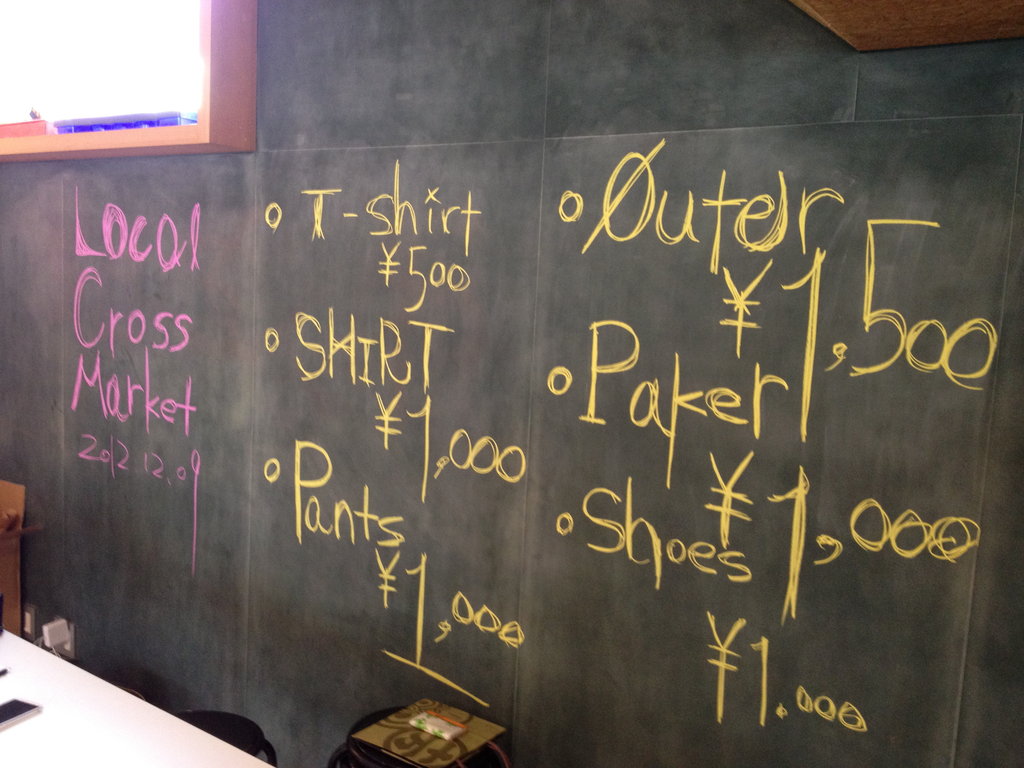 Local
Cross
Market
2012.12.09
○ T-shirt
¥500
○ SHIRT
¥1,000
○ Pants
¥1,000
○ Outer
¥1,500
○ Paker
¥1,000
○ Shoes
¥1.000